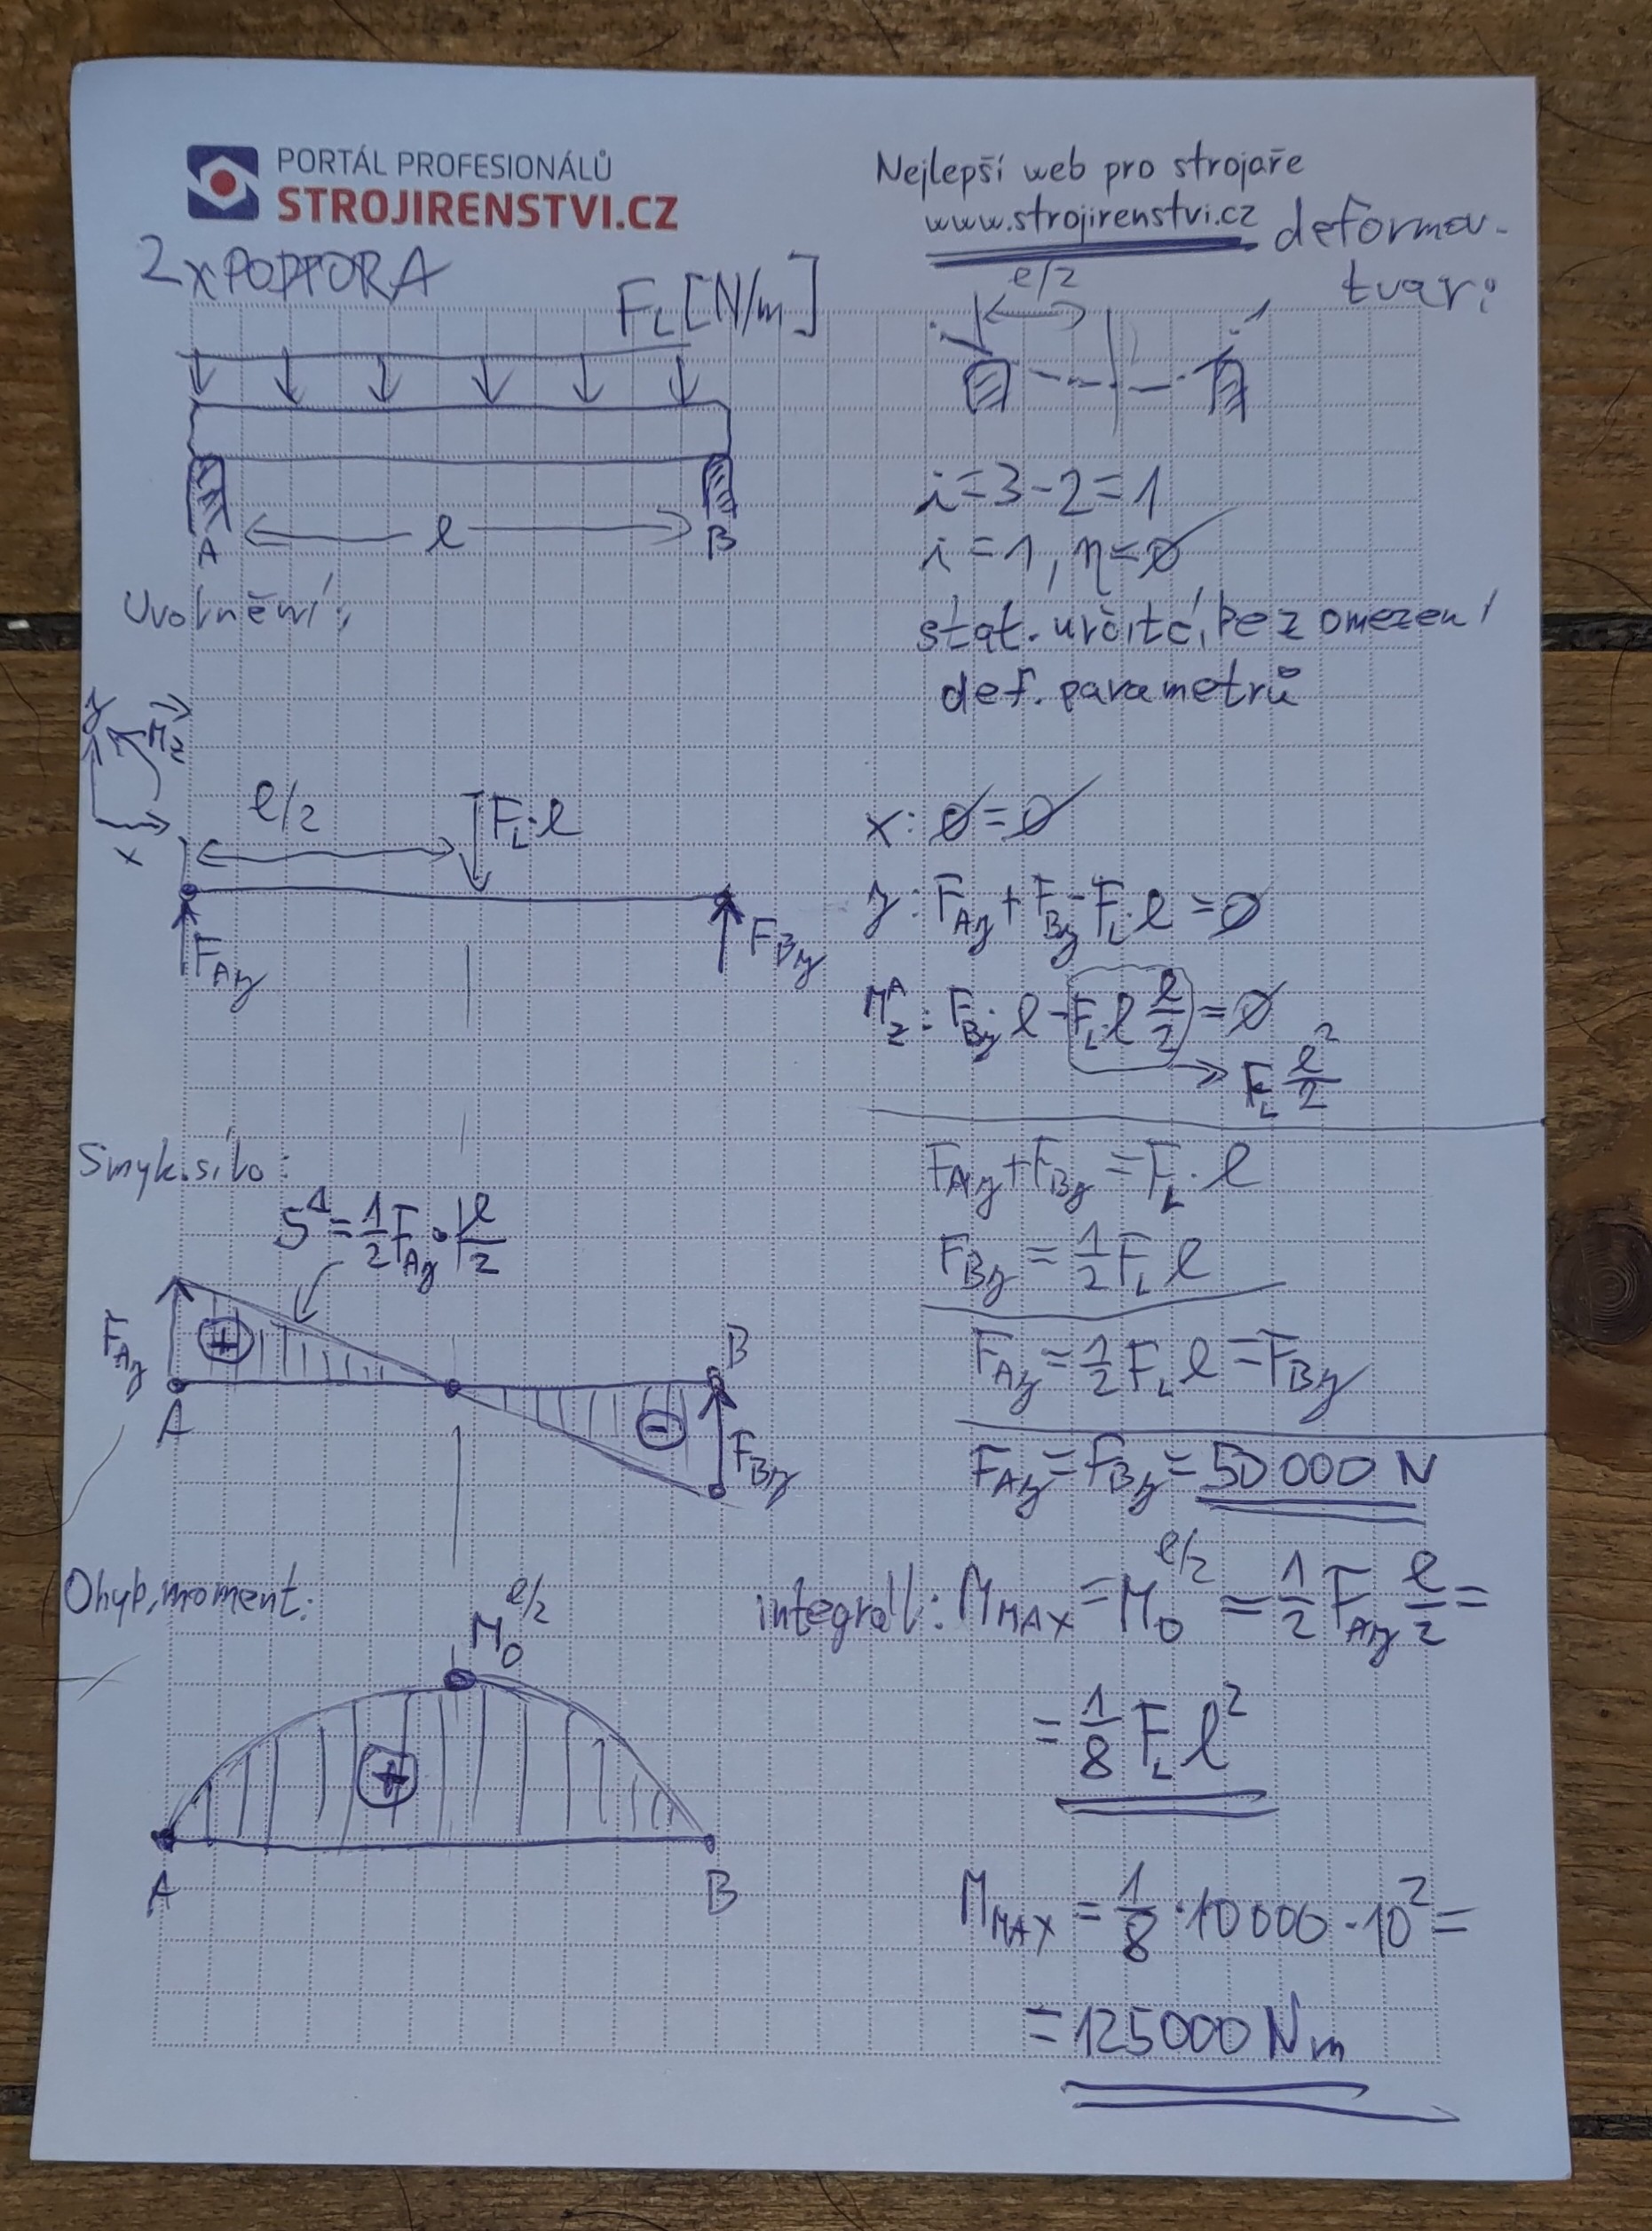 PORTÁL PROFESIONÁLŮ
STROJIRENSTVI.CZ
Nejlepší web pro strojaře
www.strojirenstvi.cz
deformov.
tvar:
2xPODPORA
F_L [N/m]
l/2
A l B
i=3-2=1
i=1, η=∅
stat. určité, bez omezení
def. parametrů
Uvolnění:
y M_z
x
l/2
F_L·l
F_Ay
F_By
x: ∅=∅
y: F_Ay+F_By-F_L·l=∅
M_z^A: F_By·l-F_L·l l/2=∅
F_L l²/2
F_Ay+F_By=F_L·l
F_By=1/2 F_L l
F_Ay=1/2 F_L l=F_By
F_Ay=F_By=50000 N
Smyk. síla:
S^Δ=1/2 F_Ay·l/2
F_Ay
+
A
B
-
F_By
Ohyb. moment:
M_O^l/2
+
A B
integrál: M_MAX=M_O^l/2=1/2 F_Ay l/2=
=1/8 F_L l²
M_MAX=1/8·10000·10²=
=125000 Nm